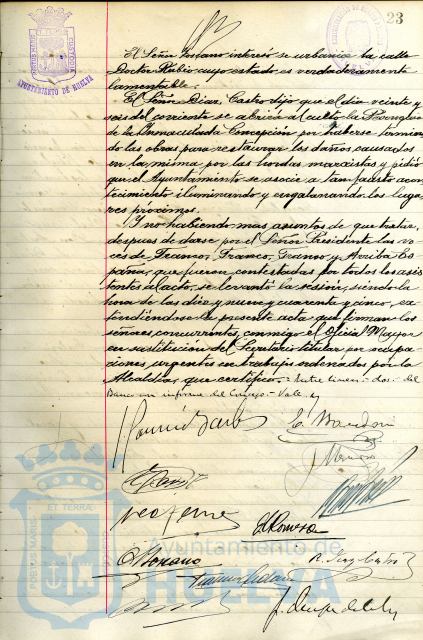 23
AYUNTAMIENTO DE HUELVA
El Señor Toscano interesó se urbanice la calle
Doctor Rubio cuyo estado es verdaderamente
lamentable.
El Señor Díaz Castro dijo que el día veinte y
seis del corriente se abrirá al culto la Parroquia
de la Inmaculada Concepción por haberse termina
do las obras para restaurar los daños causados
en la misma por las hordas marxistas y pidió
que el Ayuntamiento se asocie a tan fausto acon
tecimiento iluminando y engalanando los luga
res próximos.
Y no habiendo mas asuntos de que tratar,
despues de darse por el Señor Presidente las vo
ces de Franco, Franco, Franco y Arriba Es
paña, que fueron contestadas por todos los asis
tentes al acto, se levantó la sesión, siendo la
hora de las diez y nueve y cuarenta y cinco, ex
tendiéndose la presente acta que firman los
señores concurrentes, conmigo el Oficial Mayor
en sustitución del Secretario titular por ocupa
ciones urgentes en trabajos ordenados por la
Alcaldía, que certifico. = Entre lineas - dos - del
PORTUS MARIS ET TERRAE CUSTODIA
Ayuntamiento de
HUELVA